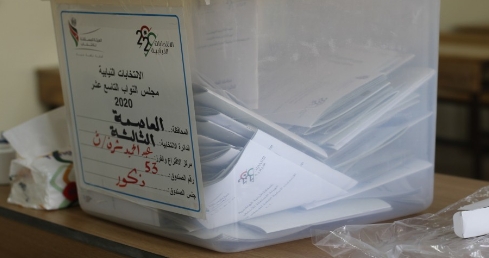 الانتخابات النيابية
مجلس النواب التاسع عشر
2020
المحافظة: العاصمة
الدائرة الانتخابية: الثالثة
مركز الاقتراع والفرز:
رقم الصندوق: 53
جنس الصندوق: ذكور